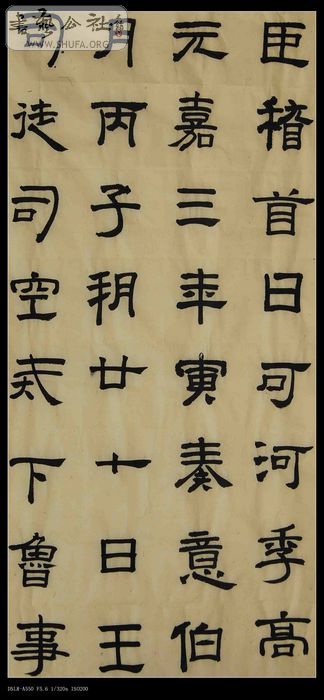 書藝公社
WWW.SHUFA.ORG
臣稽首日可河季高
元嘉三年寅奏意伯
月丙子朔廿十日王
司徒司空下魯事
DSLR-A550 F5.6 1/320s ISO200